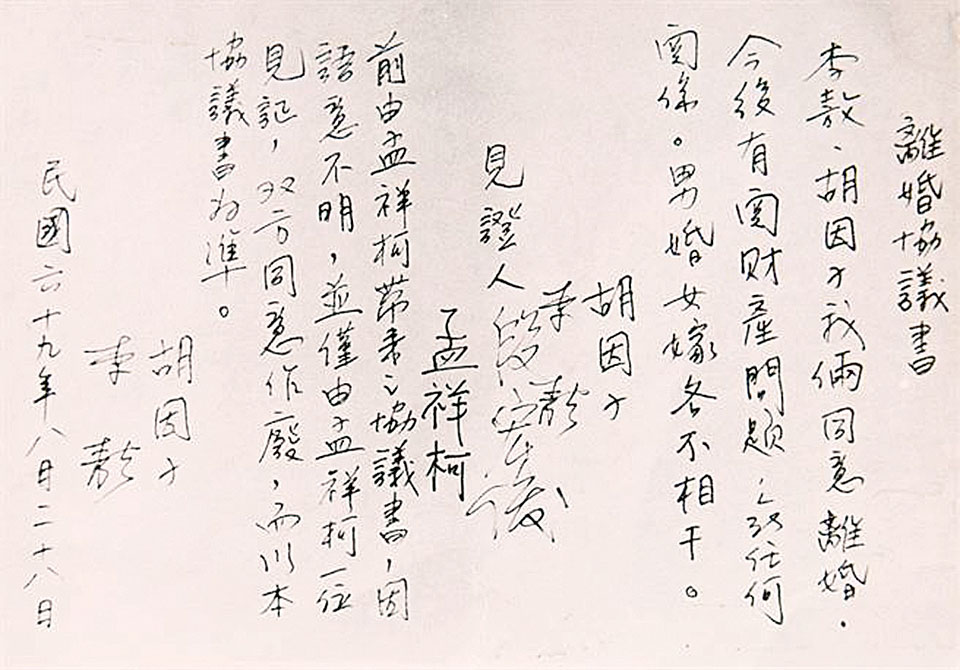 離婚協議書
李敖、胡因子我倆同意離婚.
今後有関財產問題、任何
関係。男婚女嫁各不相干。
胡因子
李敖
見證人 段宏俊
孟祥柯
前由孟祥柯帶來之協議書,因
語意不明,並僅由孟祥柯一位
見証,双方同意作廢,而以本
協議書为準。
胡因子
李敖
民國六十九年八月二十八日